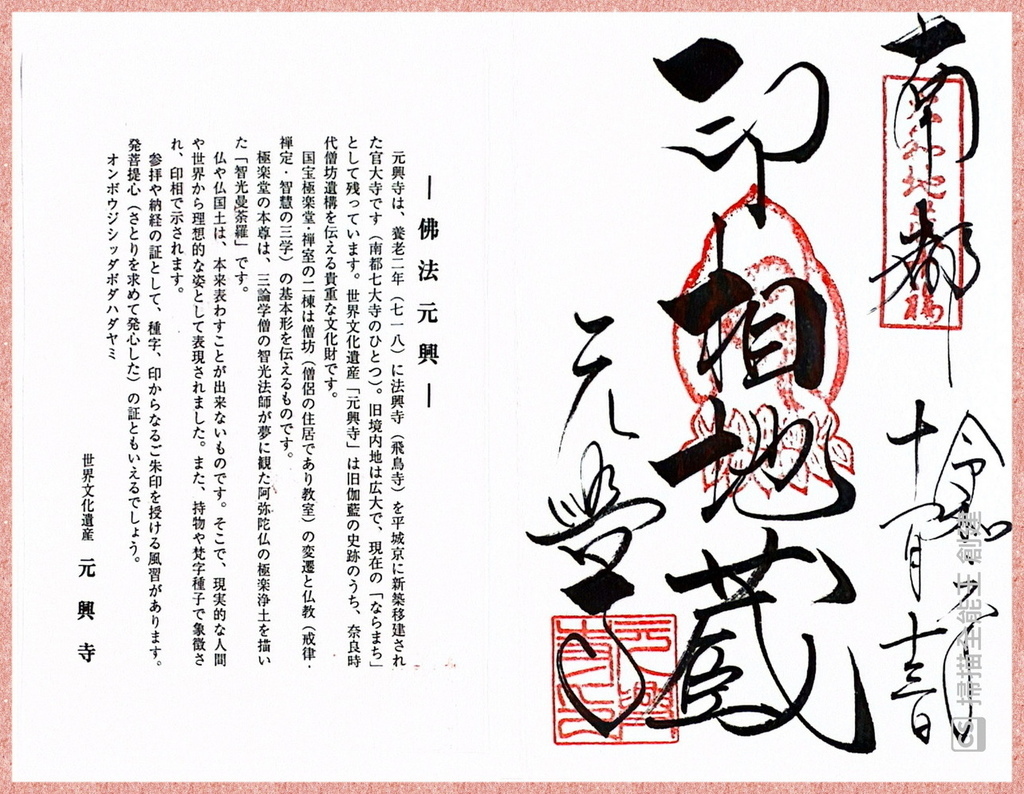 南都
令和六年
十一月十三日
印相地蔵
元興寺
― 佛法元興 ―
元興寺は、養老二年(七一八)に法興寺(飛鳥寺)を平城京に新築移建され
た官大寺です(南都七大寺のひとつ)。旧境内地は広大で、現在の「ならまち」
として残っています。世界文化遺産「元興寺」は旧伽藍の史跡のうち、奈良時
代僧坊遺構を伝える貴重な文化財です。
国宝極楽堂・禅室の二棟は僧坊(僧侶の住居であり教室)の変遷と仏教(戒律・
禅定・智慧の三学)の基本形を伝えるものです。
極楽堂の本尊は、三論学僧の智光法師が夢に観た阿弥陀仏の極楽浄土を描い
た「智光曼荼羅」です。
仏や仏国土は、本来表わすことが出来ないものです。そこで、現実的な人間
や世界から理想的な姿として表現されました。また、持物や梵字種子で象徴さ
れ、印相で示されます。
参拝や納経の証として、種字、印からなるご朱印を授ける風習があります。
発菩提心(さとりを求めて発心した)の証ともいえるでしょう。
オンボウジシッダボダハダヤミ
世界文化遺産 元興寺
CS 掃描全能王 創建